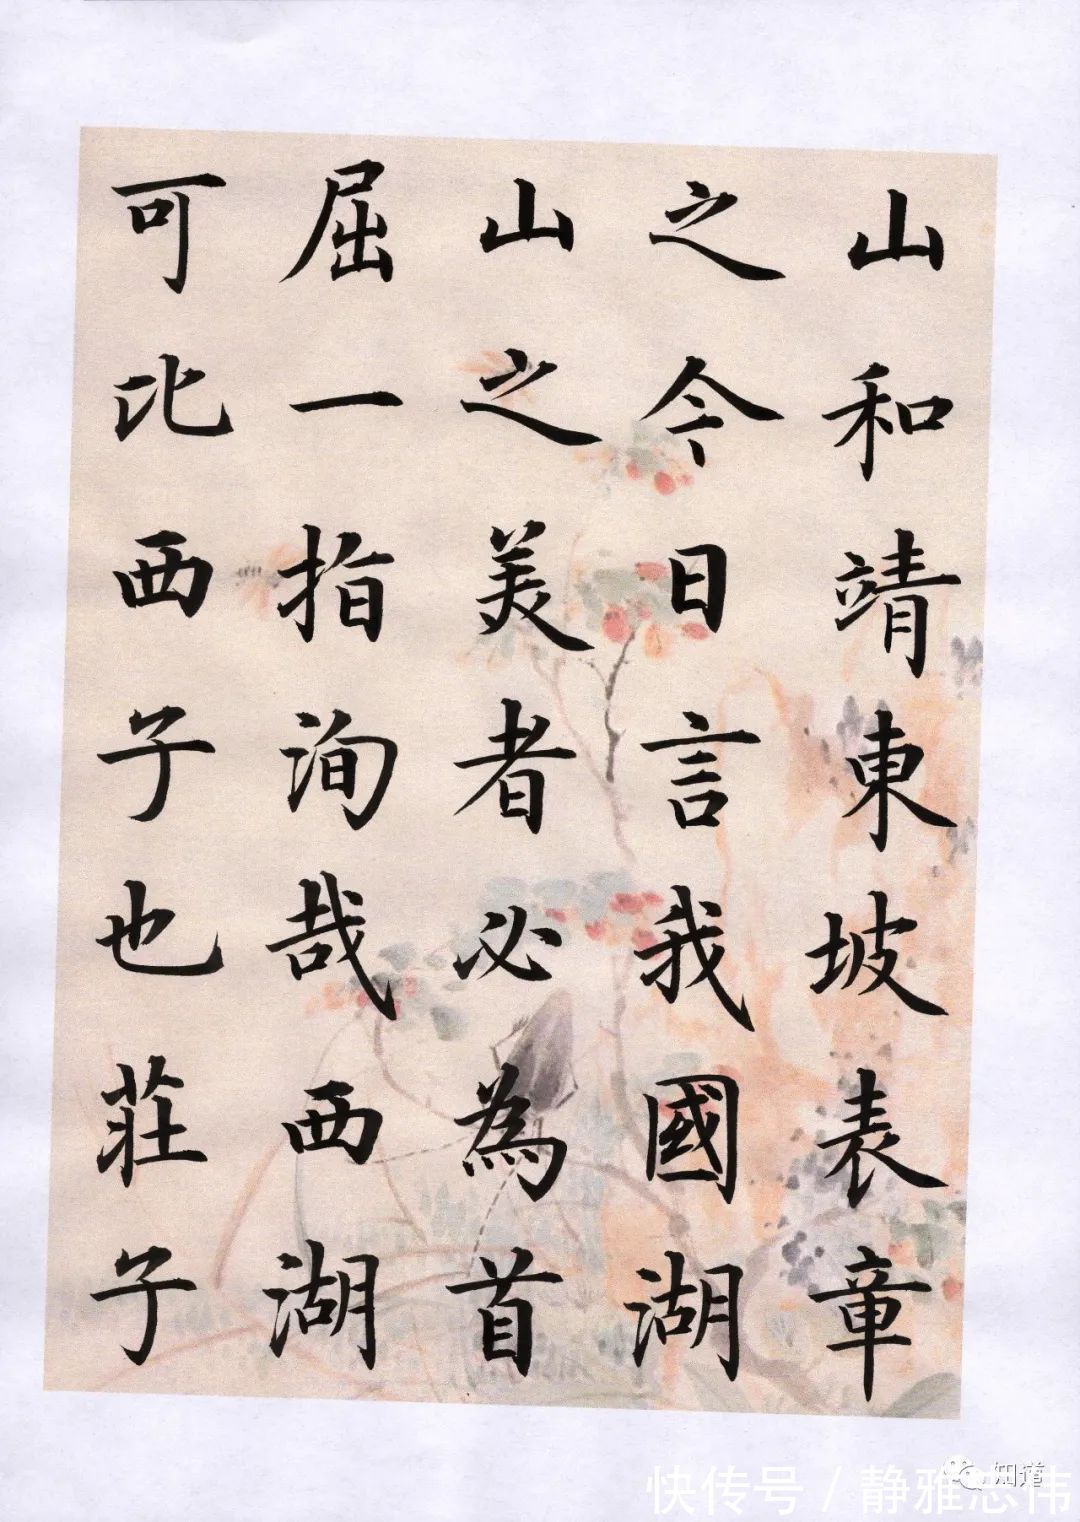 山和靖東坡表章
之今日言我國湖
山之美者必為首
屈一指洵哉西湖
可比西子也莊子
知道
快传号/静雅志伟